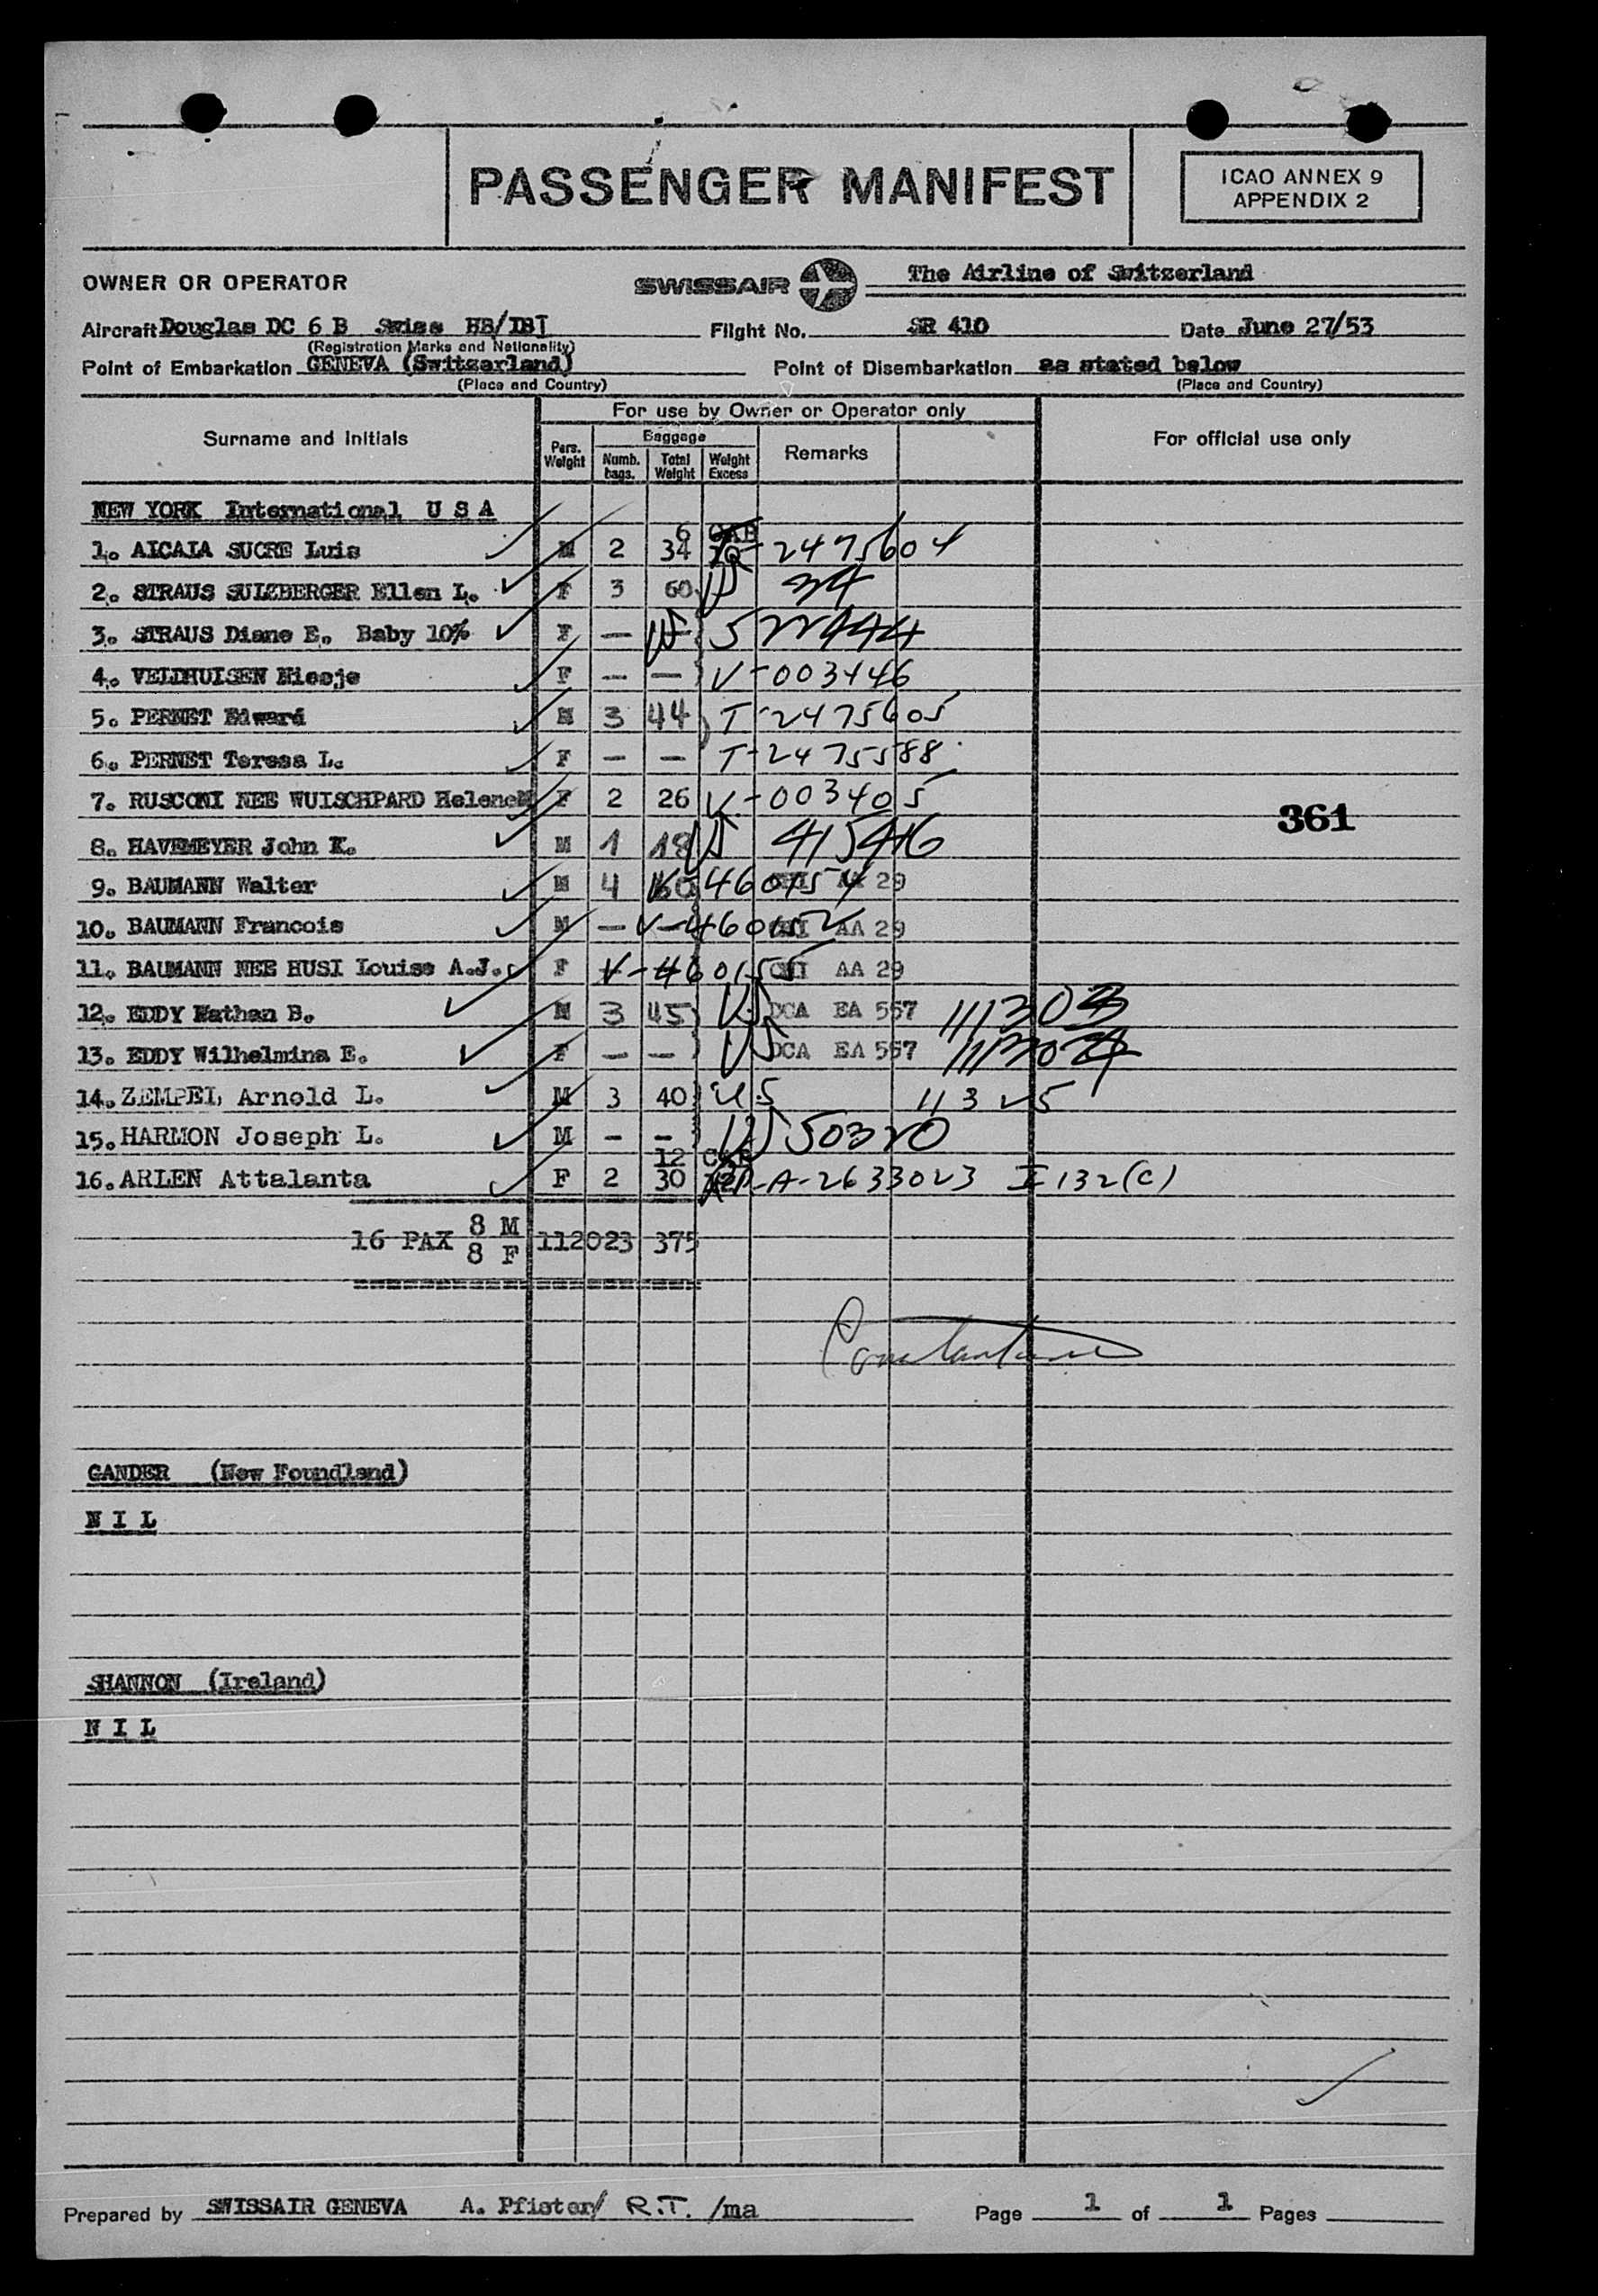 PASSENGER MANIFEST
ICAO ANNEX 9
APPENDIX 2
OWNER OR OPERATOR SWISSAIR The Airline of Switzerland
Aircraft Douglas DC 6 B Swiss HB/IBI Flight No. SR 410 Date June 27/53
(Registration Marks and Nationality)
Point of Embarkation GENEVA (Switzerland) Point of Disembarkation as stated below
(Place and Country) (Place and Country)
For use by Owner or Operator only
Surname and Initials Pers. Weight Baggage Numb. bags. Total Weight Weight Excess Remarks For official use only
NEW YORK International U S A
6 CAB
1. ALCALA SUCRE Luis M 2 34 2475604
2. STRAUS SULZBERGER Ellen L. F 3 60 US 34
3. STRAUS Diane E. Baby 10% F — — US 522444
4. VELDHUISEN Miesje F — — V-003446
5. PERNET Edward M 3 44 T-2475605
6. PERNET Teresa L. F — — T-2475588
7. RUSCONI NEE WUISCHPARD Helene M F 2 26 V-003405
361
8. HAVEMEYER John K. M 1 18 US 415416
9. BAUMANN Walter M 4 60 V-460154 CHI AA 29
10. BAUMANN Francois M — V-460152 CHI AA 29
11. BAUMANN NEE HUSI Louise A.J. F V-460155 CHI AA 29
12. EDDY Nathan B. M 3 45 US DCA EA 557 111303
13. EDDY Wilhelmina E. F — — US DCA EA 557
14. ZEMPEL Arnold L. M 3 40 US 11325
15. HARMON Joseph L. M — — US 50320
12 CAB
16. ARLEN Attalanta F 2 30 A-2633023 I 132(C)
16 PAX 8 M 8 F 1120 23 375
GANDER (New Foundland)
N I L
SHANNON (Ireland)
N I L
Prepared by SWISSAIR GENEVA A. Pfister/ R.T. /ma Page 1 of 1 Pages